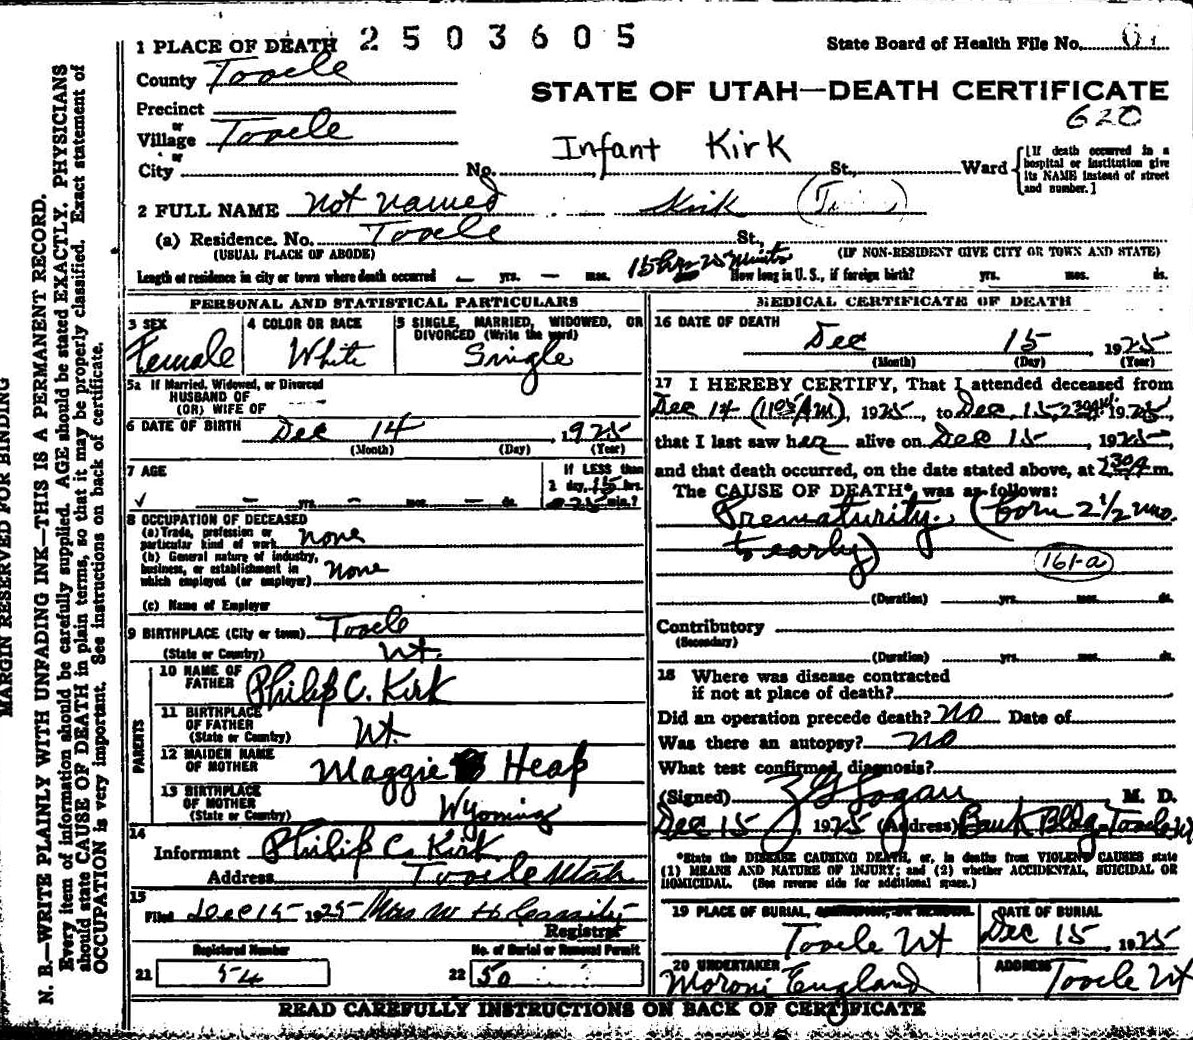 2503605
State Board of Health File No.
1 PLACE OF DEATH
County Tooele
STATE OF UTAH—DEATH CERTIFICATE
620
Precinct
or
Village Tooele
or
City No. Infant Kirk St., Ward
[If death occurred in a hospital or institution give its NAME instead of street and number.]
2 FULL NAME not named Kirk
(a) Residence. No. Tooele St.,
(USUAL PLACE OF ABODE) (IF NON-RESIDENT GIVE CITY OR TOWN AND STATE)
Length of residence in city or town where death occurred — yrs. — mos. 15 hrs 25 Minutes How long in U. S., if foreign birth? yrs. mos. ds.
PERSONAL AND STATISTICAL PARTICULARS
3 SEX Female
4 COLOR OR RACE White
5 SINGLE, MARRIED, WIDOWED, OR DIVORCED (Write the word) Single
5a If Married, Widowed, or Divorced
HUSBAND OF
(OR) WIFE OF
6 DATE OF BIRTH Dec 14, 1925
(Month) (Day) (Year)
7 AGE
— yrs. — mos. — ds.
If LESS than
1 day, 15 hrs.
or 25 min.?
8 OCCUPATION OF DECEASED
(a) Trade, profession or
particular kind of work none
(b) General nature of industry,
business, or establishment in
which employed (or employer) none
(c) Name of Employer
9 BIRTHPLACE (City or town) Tooele
(State or Country) Ut.
PARENTS
10 NAME OF FATHER Philip C. Kirk
11 BIRTHPLACE OF FATHER
(State or Country) Ut.
12 MAIDEN NAME OF MOTHER Maggie Heap
13 BIRTHPLACE OF MOTHER
(State or Country) Wyoming
14
Informant Philip C. Kirk
Address Tooele Utah
15
Filed Dec 15 1925 Mrs W H Cassity
Registrar
Registered Number
21 54
No. of Burial or Removal Permit
22 50
MEDICAL CERTIFICATE OF DEATH
16 DATE OF DEATH
Dec 15, 1925
(Month) (Day) (Year)
17 I HEREBY CERTIFY, That I attended deceased from
Dec 14 (1105 AM), 1925, to Dec. 15, 230 AM. 1925
that I last saw her alive on Dec 15, 1925,
and that death occurred, on the date stated above, at 230 A m.
The CAUSE OF DEATH* was as follows:
Prematurity. (born 2 1/2 mo.
to early)
161-a
(Duration) yrs. mos. ds.
Contributory
(Secondary)
(Duration) yrs. mos. ds.
18 Where was disease contracted
if not at place of death?
Did an operation precede death? No Date of
Was there an autopsy? No
What test confirmed diagnosis?
(Signed) M. D.
Dec 15, 1925 (Address) Bank Bldg. Tooele Ut
*State the DISEASE CAUSING DEATH, or, in deaths from VIOLENT CAUSES state
(1) MEANS AND NATURE OF INJURY; and (2) whether ACCIDENTAL, SUICIDAL OR
HOMICIDAL. (See reverse side for additional space.)
19 PLACE OF BURIAL,
Tooele Ut
DATE OF BURIAL
Dec 15, 1925
20 UNDERTAKER
Moroni England
ADDRESS
Tooele Ut
READ CAREFULLY INSTRUCTIONS ON BACK OF CERTIFICATE
MARGIN RESERVED FOR BINDING
N. B.—WRITE PLAINLY WITH UNFADING INK—THIS IS A PERMANENT RECORD.
Every item of information should be carefully supplied. AGE should be stated EXACTLY. PHYSICIANS
should state CAUSE OF DEATH in plain terms, so that it may be properly classified. Exact statement of
OCCUPATION is very important. See instructions on back of certificate.